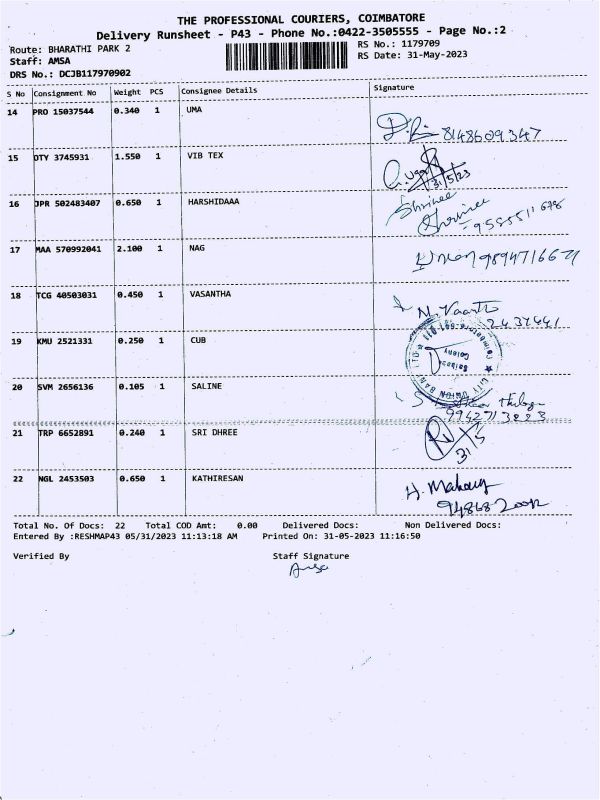 THE PROFESSIONAL COURIERS, COIMBATORE
Delivery Runsheet - P43 - Phone No.:0422-3505555 - Page No.:2
Route: BHARATHI PARK 2
RS No.: 1179709
Staff: AMSA
RS Date: 31-May-2023
DRS No.: DCJB117970902
S No Consignment No Weight PCS Consignee Details Signature
14 PRO 15037544 0.340 1 UMA
8148609347
15 DTY 3745931 1.550 1 VIB TEX
31/5/23
16 JPR 502483407 0.650 1 HARSHIDAAA
Shrinee
17 MAA 570992041 2.100 1 NAG
18 TCG 40503031 0.450 1 VASANTHA
2437441
19 KMU 2521331 0.250 1 CUB
20 SVM 2656136 0.105 1 SALINE
9942713223
21 TRP 6652891 0.240 1 SRI DHREE
31/5
22 NGL 2453503 0.650 1 KATHIRESAN
Total No. Of Docs: 22 Total COD Amt: 0.00 Delivered Docs: Non Delivered Docs:
Entered By :RESHMAP43 05/31/2023 11:13:18 AM Printed On: 31-05-2023 11:16:50
Verified By Staff Signature
Amsa